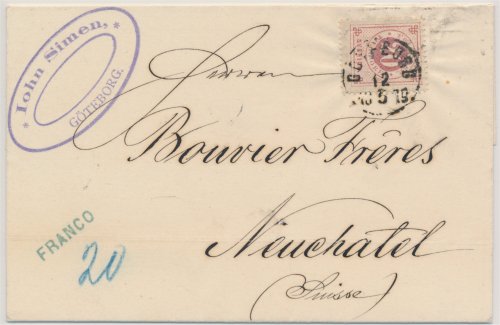 * Iohn Simen, *
GÖTEBORG.
GÖTEBORG
12
5 79
Herren
Bouvier Frères
Neuchatel
(Suisse)
FRANCO
20